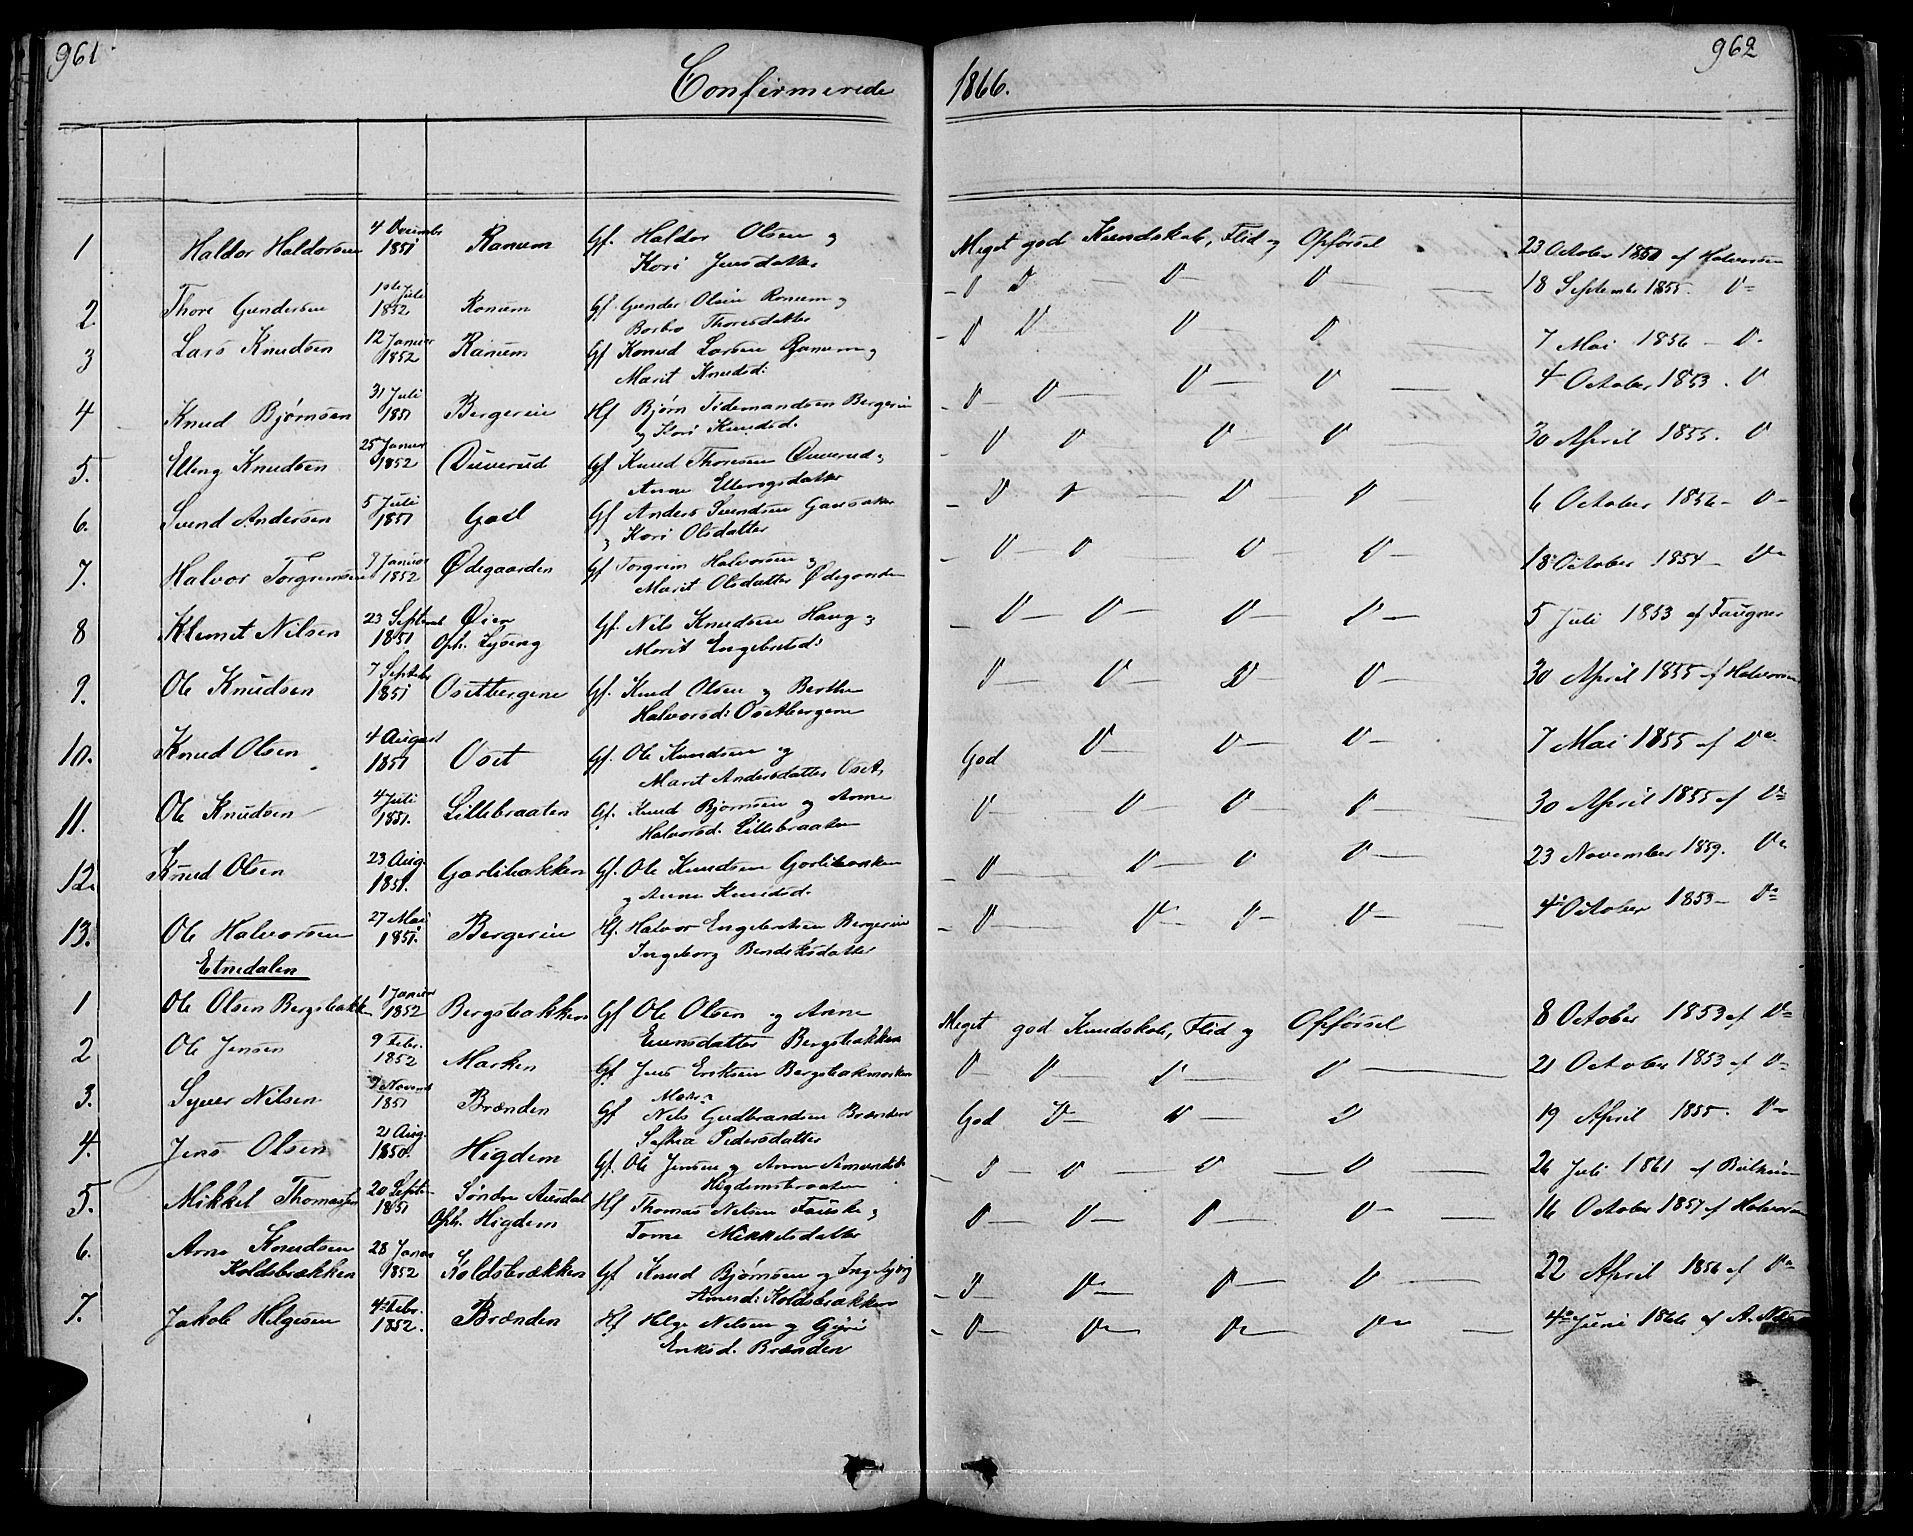 961
962
Confirmerede 1866.
1 Haldor Haldorsen 4 Decembr 1851 Ranum Gf. Haldor Olsen og Meget god Kundskab, Flid og Opførsel 23 October 1850 af Halvorsen
Kari Jensdatter
2 Thore Gundersen 1ste Juli 1852 Ranum Gf. Gunder Olsen Ranum og D D — D — D — 18 September 1855. Do
Barbro Thoresdatter
3 Lars Knudsen 12 Januar 1852 Ranum Gf Knud Larsen Ranum og D D — D — D 7 Mai 1856 — D.
Marit Knudsd:
4 Knud Bjørnsen 31 Juli 1851 Bergerie Hf Bjørn Tidemandsen Bergerie D — D — D — D — 4 October 1853. D
og Kari Knudsd.
5. Elling Knudsen 25 Januar 1852 Duverud Gf Knud Thoresen Duverud og D D — D — D — 30 April 1855. D
Anne Ellingsdatter
6. Svend Andersen 5 Juli 1851 Goel Gf Anders Svendsen D D — D — D — 6 October 1856 — D —
og Kari Olsdatter
7. Halvor Torgrimsen 9 Januar 1852 Ødegaarden Gf Torgrim Halvorsen og D — D — D — D — 18 October 1854 — Do
Marit Olsdatter Ødegaarden
8 Klemet Nilsen 23 Septemb 1851 Øien Gf. Nils Knudsen Haug og D — D — D — D — 5 Juli 1853 af Faugner
Oph. Lysing Marit Engebretsd:
9. Ole Knudsen 7 Septebr 1851 Osetbergene Gf. Knud Olsen og Berthe D — D — D — D — 30 April 1855 af Halvorsen
Halvorsd: Osetbergene
10. Knud Olsen 4 August 1851 Oset Gf. Ole Knudsen og God D — D — D — 7 Mai 1855 af Do
Marit Andersdatter Oset
11. Ole Knudsen 4 Juli 1851. Lillebraaten Gf. Knud Bjørnsen og Anne D — D — D — D — 30 April 1855 af Do
Halvorsd. Lillebraaten
12. Knud Olsen 23 Aug. 1851. Garlibakken Gf. Ole Knudsen Garlibakken D — D — D D — 23 November 1859. Do
og Anne Knudsd.
13. Ole Halvorsen 27 Mai 1851. Bergerie Hf. Halvor Engebretsen Bergerie D — D — D — D — 4 October 1853 — Do
Ingeborg Bendiksdatter
Etnedalen
1 Ole Olsen Bergsbakk 1 Januar 1852 Bergsbakken Gf Ole Olsen og Anne Meget god Kundskab, Flid og Opførsel 8 October 1853 af Do
Evensdatter Bergsbakken
2 Ole Jensen 9 Febr. 1852 Marken Gf Jens Eriksen Bergsbakmarken D D — D — D — 21 October 1853 af Do
3. Syver Nilsen 9 Novemb 1851 Brænden Gf Nils Gudbrandsen Brænden God D — D — D 19 April 1855. Do
Sophia Pedersdatter
4. Jens Olsen 21 Aug. 1850. Higdem Gf. Ole Jensen og Anne Amundsd. D — D — D — D — 26 Juli 1861 af
Higdemsbraaten
5. Mikkel Thomassen 20 Septr 1851 Søndre Ausdal Hf Thomas Nilsen Fauske og D — D — D — D — 16 October 1857 af Halvorsen
Oph. Higdem Tome Mikkelsdatter
6. Arne Knudsen 28 Januar 1852 Koldsbrækken Gf Knud Bjørnsen og Ingebjørg D — D — D — D — 22 April 1856 af Do
Koldsbrækken Arnesd: Koldsbrækken
7. Jakob Helgesen 4 Febr. 1852. Brænden Hf Helge Nilsen og Gjøri D — Do — Do — Do — 4de Juni 1866 af
Eriksd. Brænden